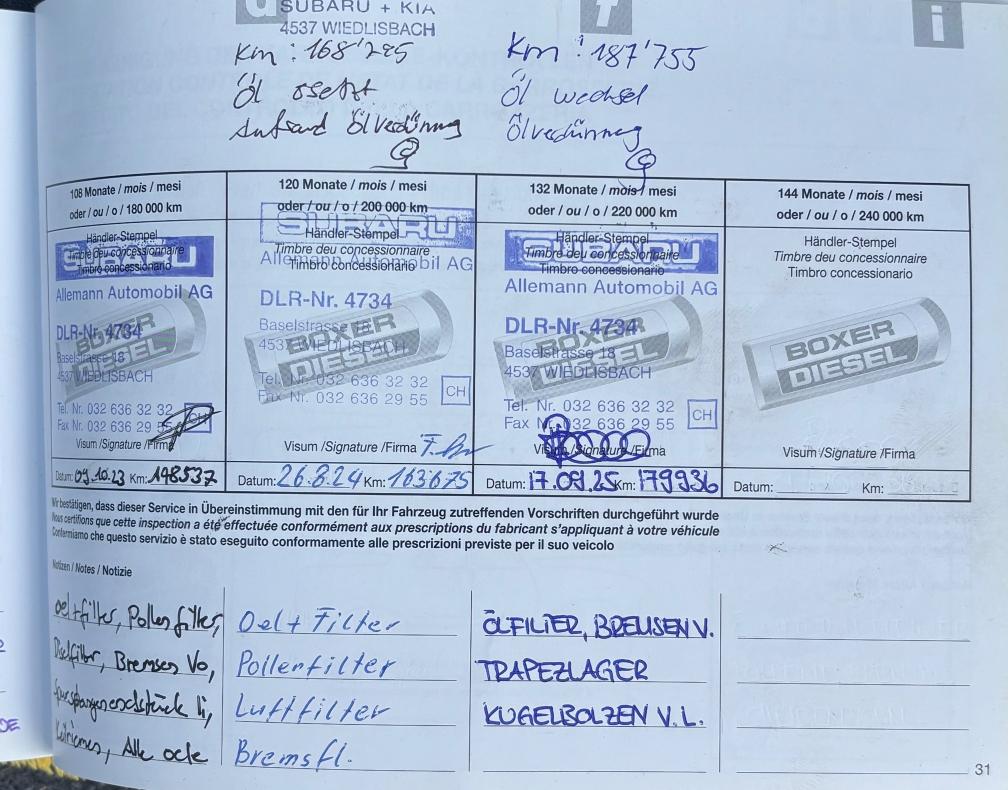 SUBARU + KIA
4537 WIEDLISBACH
i
Km : 168'295
Öl
Ölverdünnung
Km : 187'755
Öl wechsel
Ölverdünnung
108 Monate / mois / mesi
oder / ou / o / 180 000 km
Händler-Stempel
Timbre deu concessionnaire
Timbro concessionario
SUBARU
Allemann Automobil AG
DLR-Nr. 4734
Baselstrasse 18
4537 WIEDLISBACH
BOXER
DIESEL
Tel. Nr. 032 636 32 32
Fax Nr. 032 636 29 55
CH
Visum /Signature /Firma
Datum: 09.10.23 Km: 148537
120 Monate / mois / mesi
oder / ou / o / 200 000 km
SUBARU
Händler-Stempel
Timbre deu concessionnaire
Timbro concessionario
Allemann Automobil AG
DLR-Nr. 4734
Baselstrasse 18
4537 WIEDLISBACH
BOXER
DIESEL
Tel. Nr. 032 636 32 32
Fax Nr. 032 636 29 55
CH
Visum /Signature /Firma
Datum: 26.8.24 Km: 163675
132 Monate / mois / mesi
oder / ou / o / 220 000 km
Händler-Stempel
Timbre deu concessionnaire
Timbro concessionario
SUBARU
Allemann Automobil AG
DLR-Nr. 4734
Baselstrasse 18
4537 WIEDLISBACH
BOXER
DIESEL
Tel. Nr. 032 636 32 32
Fax Nr. 032 636 29 55
CH
Visum /Signature /Firma
Datum: 17.09.25 Km: 179936
144 Monate / mois / mesi
oder / ou / o / 240 000 km
Händler-Stempel
Timbre deu concessionnaire
Timbro concessionario
BOXER
DIESEL
Visum /Signature /Firma
Datum: Km:
Wir bestätigen, dass dieser Service in Übereinstimmung mit den für Ihr Fahrzeug zutreffenden Vorschriften durchgeführt wurde
Nous certifions que cette inspection a été effectuée conformément aux prescriptions du fabricant s'appliquant à votre véhicule
Confermiamo che questo servizio è stato eseguito conformamente alle prescrizioni previste per il suo veicolo
Notizen / Notes / Notizie
oel+filter, Pollenfilter,
Bremsen Vo,
li,
Alle
Oel + Filter
Pollenfilter
Luftfilter
Bremsfl.
ÖLFILTER, BREMSEN V.
TRAPEZLAGER
KUGELBOLZEN V.L.
31